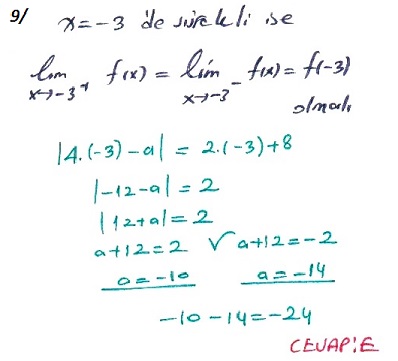 9/ x=-3 'de sürekli ise
lim x→-3⁺ f(x) = lim x→-3⁻ f(x) = f(-3)
olmalı
|4.(-3)-a| = 2.(-3)+8
|-12-a| = 2
|12+a| = 2
a+12=2 ∨ a+12=-2
a=-10 a=-14
-10-14=-24
CEVAP:E